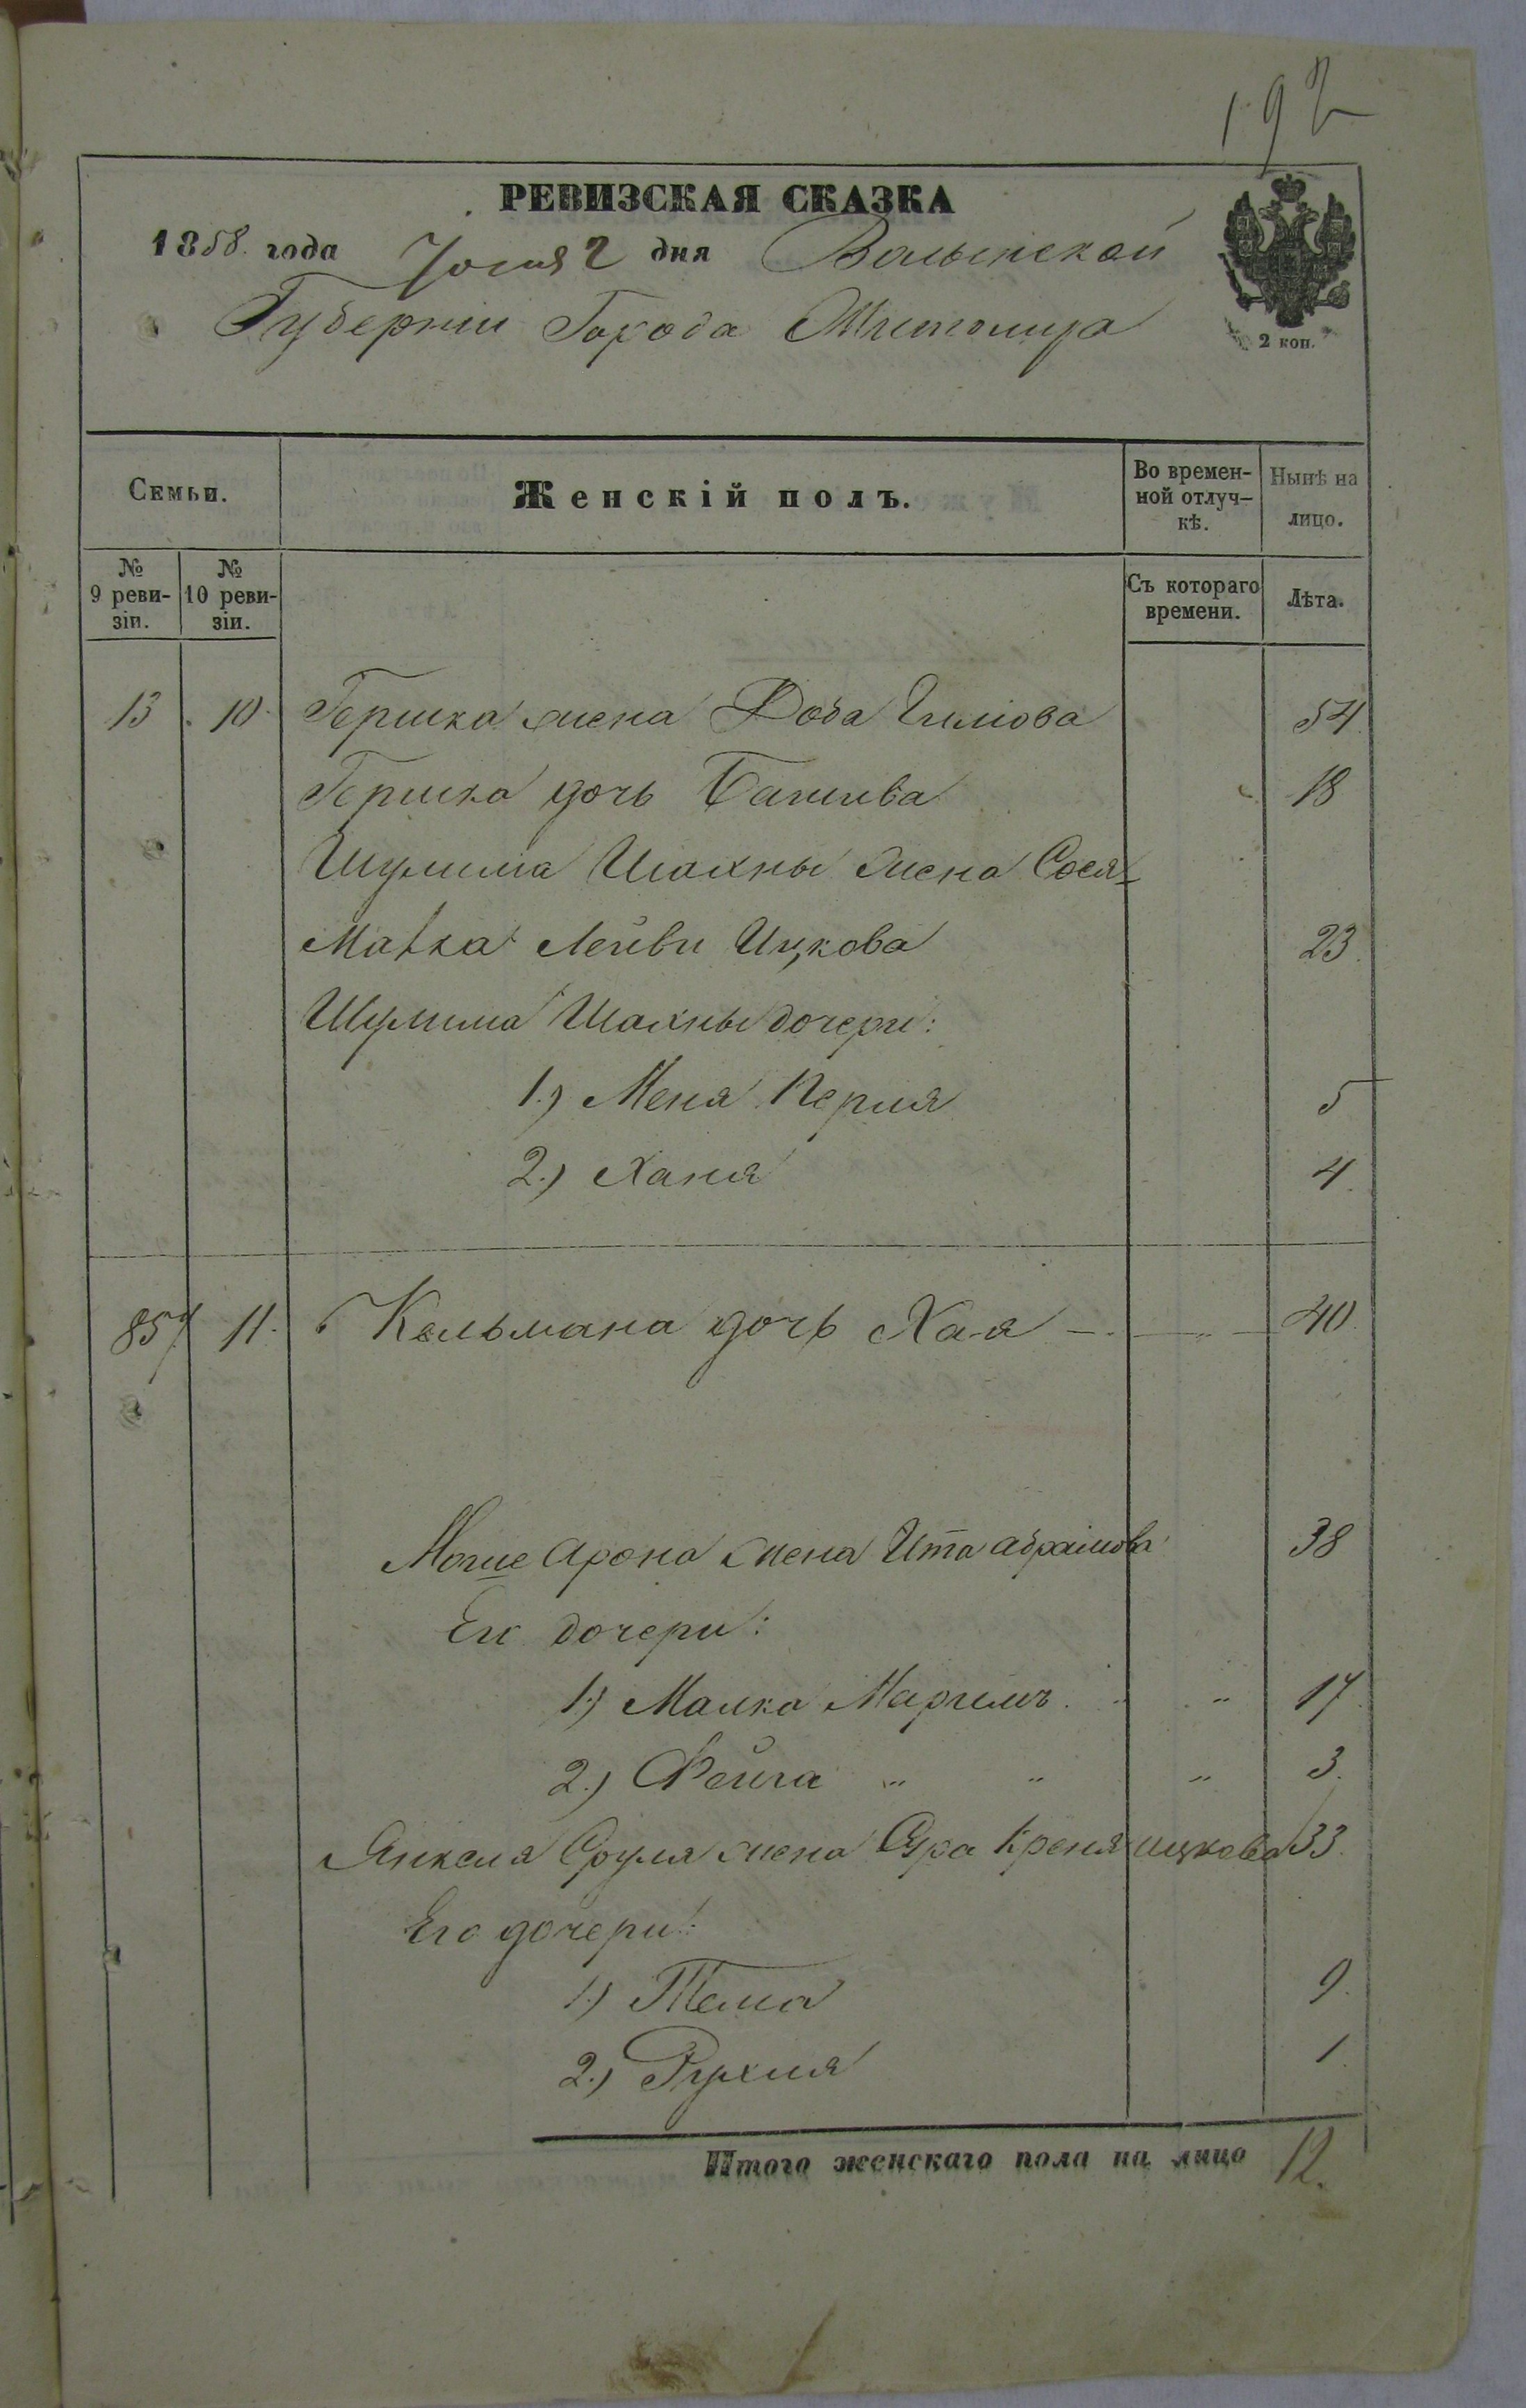 192
РЕВИЗСКАЯ СКАЗКА
1858. года Юния 2 дня Волынской
Губернии Города Житомира
2 коп.
Семьи. Женскій полъ. Во времен- Нынѣ на
ной отлуч- лицо.
кѣ.
№ № Съ котораго Лѣта.
9 реви- 10 реви- времени.
зіи. зіи.
13 10 Гершка жена Доба 54
Гершка дочь Башива 18
Шулима Шахны жена Сося-
Малка Лейви Ицкова 23
Шулима Шахны дочери:
1.) Меня Перля 5
2.) Ханя 4
857 11. Кельмана дочь Хая 40
Мошие Арона жена Ита Абрамова 38
Его дочери:
1.) Малка Мариямъ 17
2.) Фейга " " " 3.
Янкеля Сруля жена Сура Креня Ицкова 33.
Его дочери:
1.) Тема 9.
2.) Рухля 1
Итого женскаго пола на лицо 12.